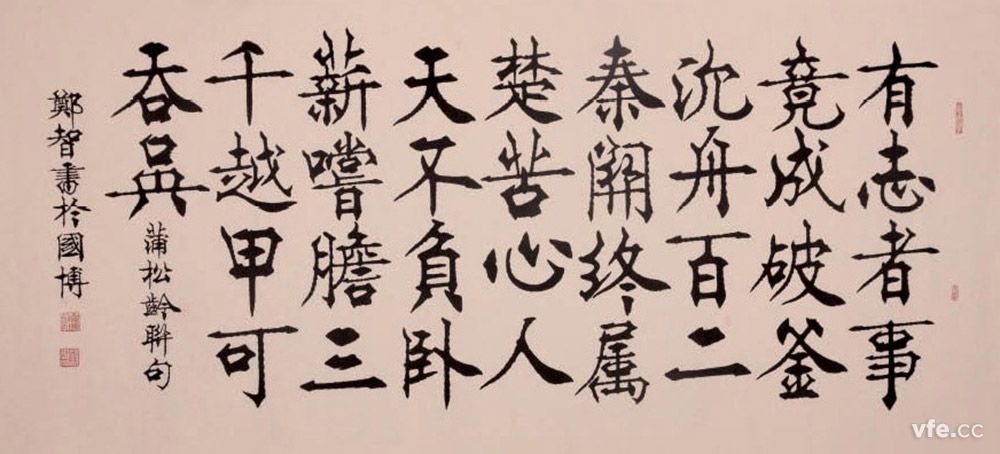 有志者事
竟成破釜
沈舟百二
秦關终属
楚苦心人
天不負卧
薪嚐膽三
千越甲可
吞吳
蒲松齡聯句
鄭智書於國博
vfe.cc